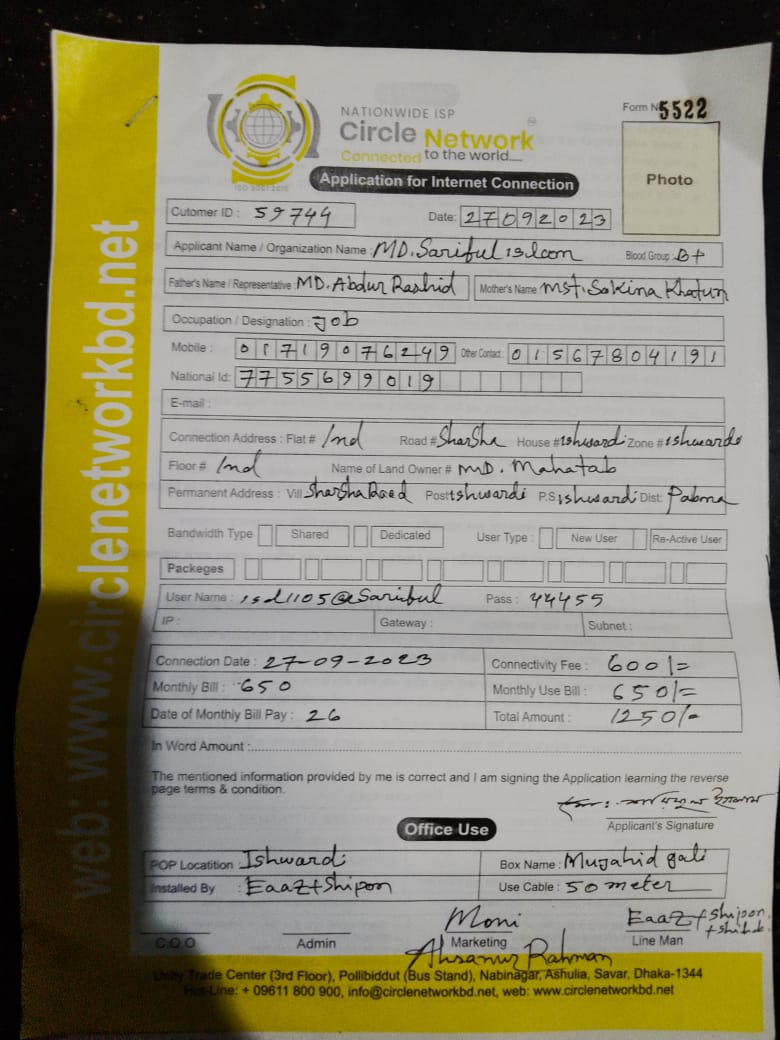 NATIONWIDE ISP
Circle Network
Connected to the world....
ISO 9001:2015
Form N 5522
Photo
Application for Internet Connection
Cutomer ID : 59744 Date: 27092023
Applicant Name / Organization Name : MD. Sariful islam Blood Group : B+
Father's Name / Representative : MD. Abdur Rashid Mother's Name Mst. Sakina Khatun
Occupation / Designation : Job
Mobile : 01719076249 Other Contact : 01567804191
National Id: 7755699019
E-mail :
Connection Address : Flat # Ind Road # Sharsha House # Ishwardi Zone # ishwardi
Floor # Ind Name of Land Owner # MD. Mahatab
Permanent Address : Vill Sharsha Road Post Ishwardi P.S ishwardi Dist: Pabna
Bandwidth Type Shared Dedicated User Type : New User Re-Active User
Packeges
User Name : isd1105@Sariful Pass : 44455
IP : Gateway : Subnet :
Connection Date : 27-09-2023 Connectivity Fee : 600/=
Monthly Bill : 650 Monthly Use Bill : 650/=
Date of Monthly Bill Pay : 26 Total Amount : 1250/-
In Word Amount :
The mentioned information provided by me is correct and I am signing the Application learning the reverse
page terms & condition.
Applicant's Signature
Office Use
POP Locatition : Ishwardi Box Name : Mujahid gali
Installed By : Eaaz+Shipon Use Cable : 50 meter
Moni Eaaz+Shipon
C.O.O Admin Marketing Line Man
Ahsanur Rahman
Unity Trade Center (3rd Floor), Pollibiddut (Bus Stand), Nabinagar, Ashulia, Savar, Dhaka-1344
Hot-Line: + 09611 800 900, info@circlenetworkbd.net, web: www.circlenetworkbd.net
web: www.circlenetworkbd.net